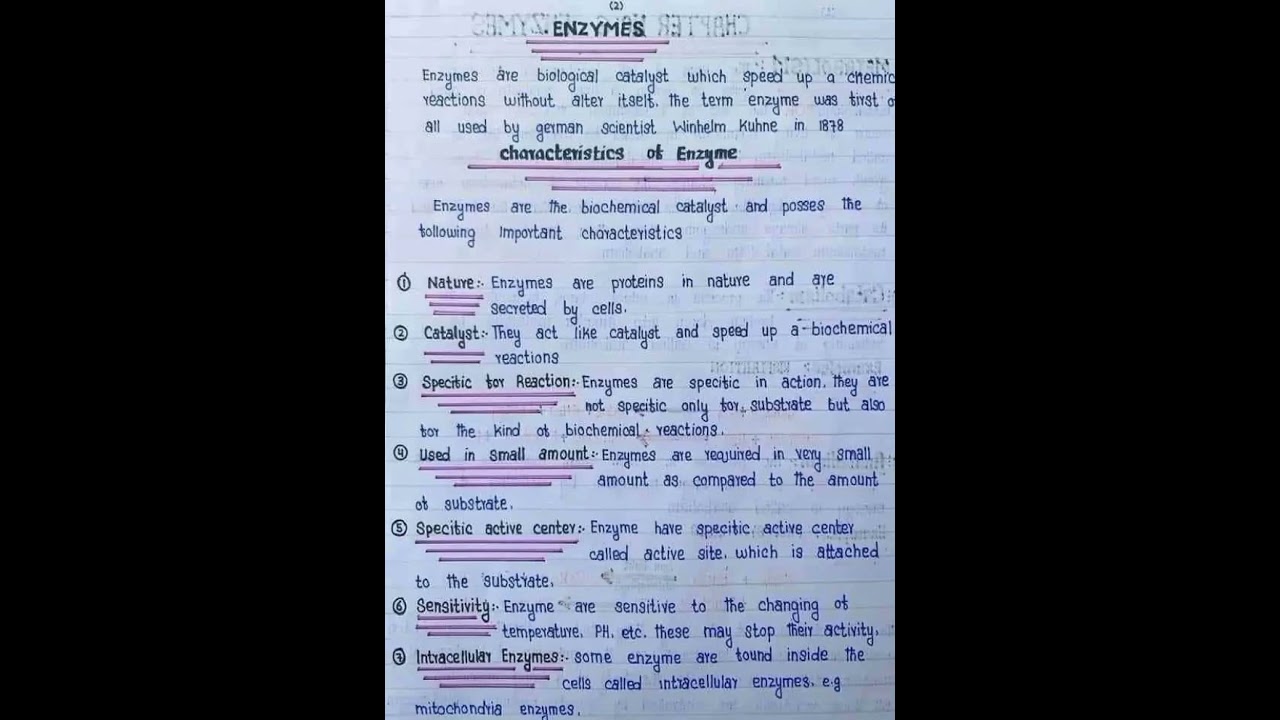 (2)
ENZYMES
Enzymes are biological catalyst which speed up a chemic
reactions without alter itself. the term enzyme was first o
all used by german scientist Winhelm Kuhne in 1878
characteristics of Enzyme
Enzymes are the biochemical catalyst and posses the
following important characteristics
① Nature:- Enzymes are proteins in nature and are
secreted by cells.
② Catalyst:- They act like catalyst and speed up a biochemical
reactions
③ Specific for Reaction:- Enzymes are specific in action. they are
not specific only for substrate but also
for the kind of biochemical reactions.
④ Used in small amount:- Enzymes are required in very small
amount as compared to the amount
of substrate.
⑤ Specific active center:- Enzyme have specific active center
called active site. which is attached
to the substrate.
⑥ Sensitivity:- Enzyme are sensitive to the changing of
temperature. PH. etc. these may stop their activity.
⑦ Intracellular Enzymes:- some enzyme are found inside the
cells called intracellular enzymes. e.g
mitochondria enzymes.